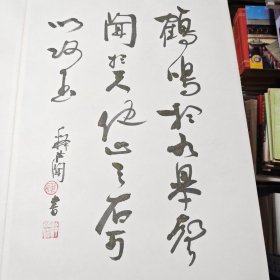 鶴鳴於九皋聲
聞於天他山之石可
以攻玉
書